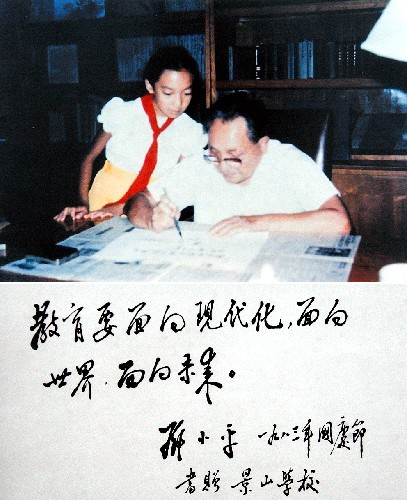 教育要面向现代化,面向
世界,面向未来。
邓小平 一九八三年國慶節
書贈 景山學校